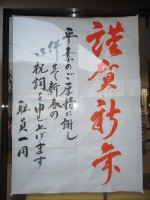 謹賀新年
平素のご厚情に謝し
併せて新春の
ご祝詞を申し上げます
職員一同